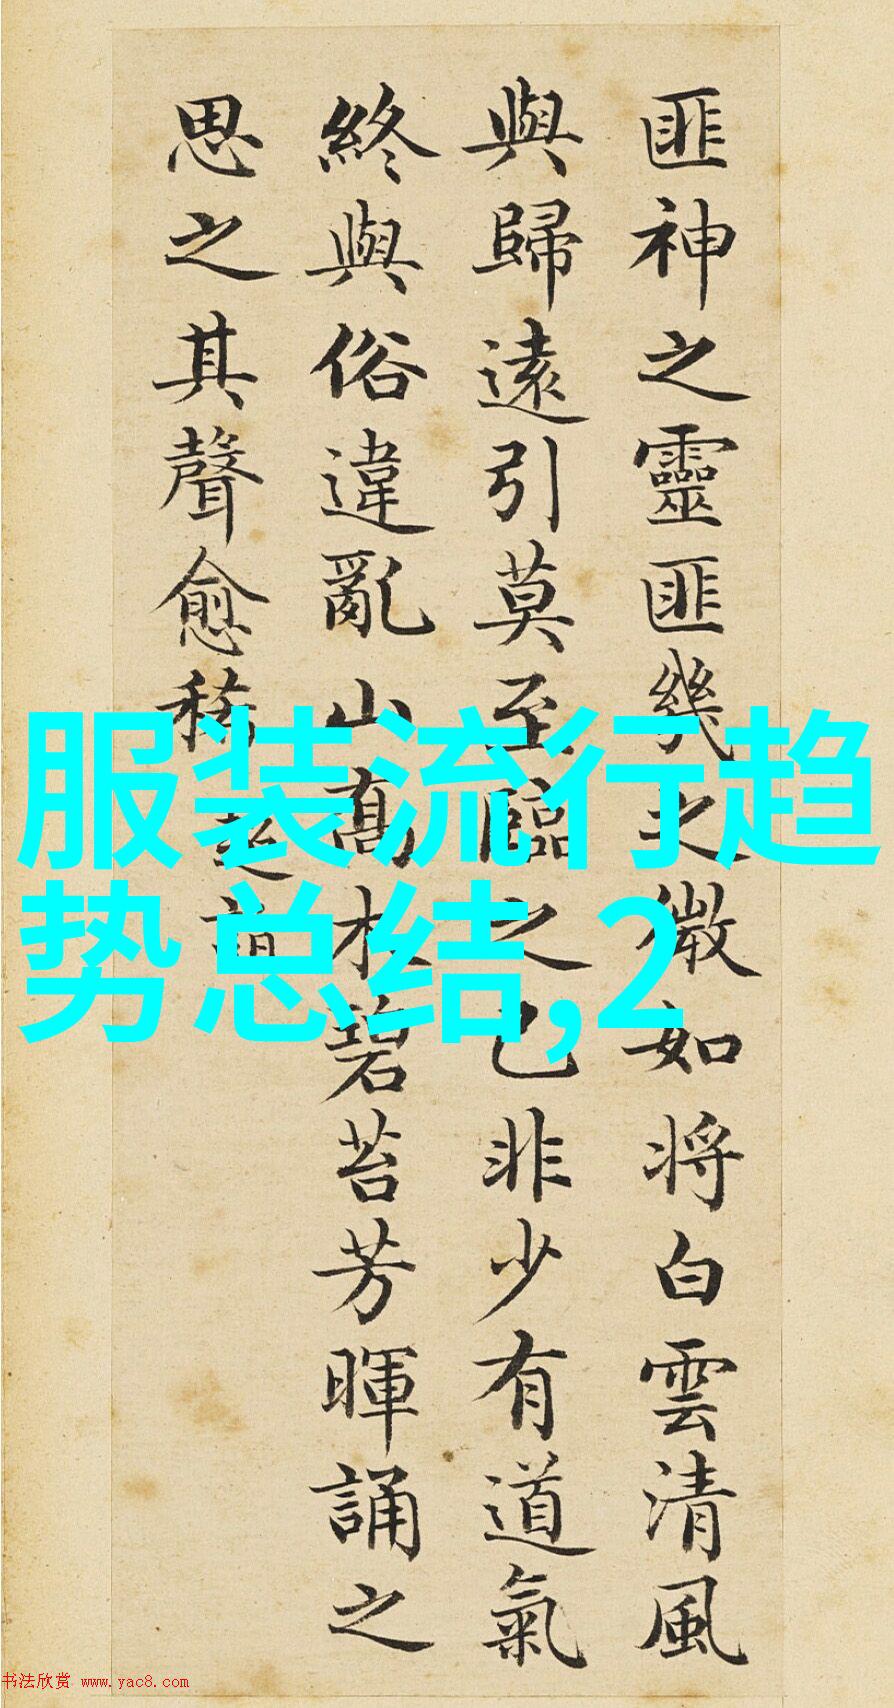 匪神之靈匪幾之微如將白雲清風
與歸遠引莫至臨之已非少有道氣
終與俗違亂山髙木碧苔芳暉誦之
思之其聲愈稀
服装流行趋
势总结,2
书法欣赏 www.yac8.com